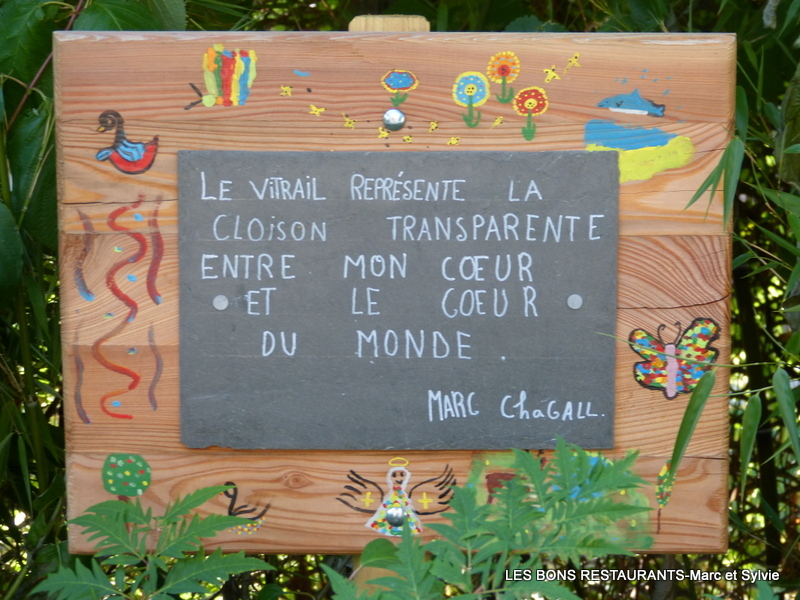 LE VITRAIL REPRÉSENTE LA
CLOISON TRANSPARENTE
ENTRE MON CŒUR
ET LE CŒUR
DU MONDE.
MARC ChaGALL.
LES BONS RESTAURANTS-Marc et Sylvie